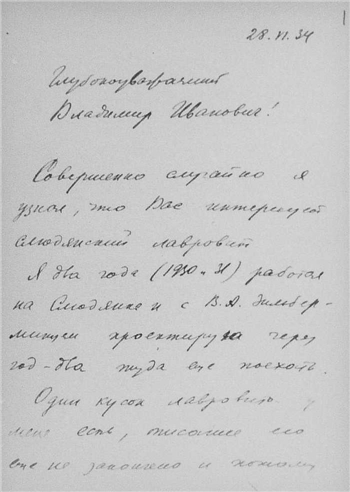 1
28.VI.34
Глубокоуважаемый
Владимир Иванович!
Совершенно случайно я
узнал, что Вас интересует
слюдянский лавровит
Я два года (1930 и 31) работал
на Слюдянке и с В.А. Зильбер-
минцем проектируем через
год-два туда еще поехать.
Один кусок лавровита у
меня есть, описание его
еще не закончено и потому